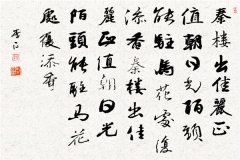 秦樓出佳麗正
值朝日光陌頭
能駐馬花處復
添香秦樓出佳
麗正值朝日光
陌頭能駐馬花
處復添香